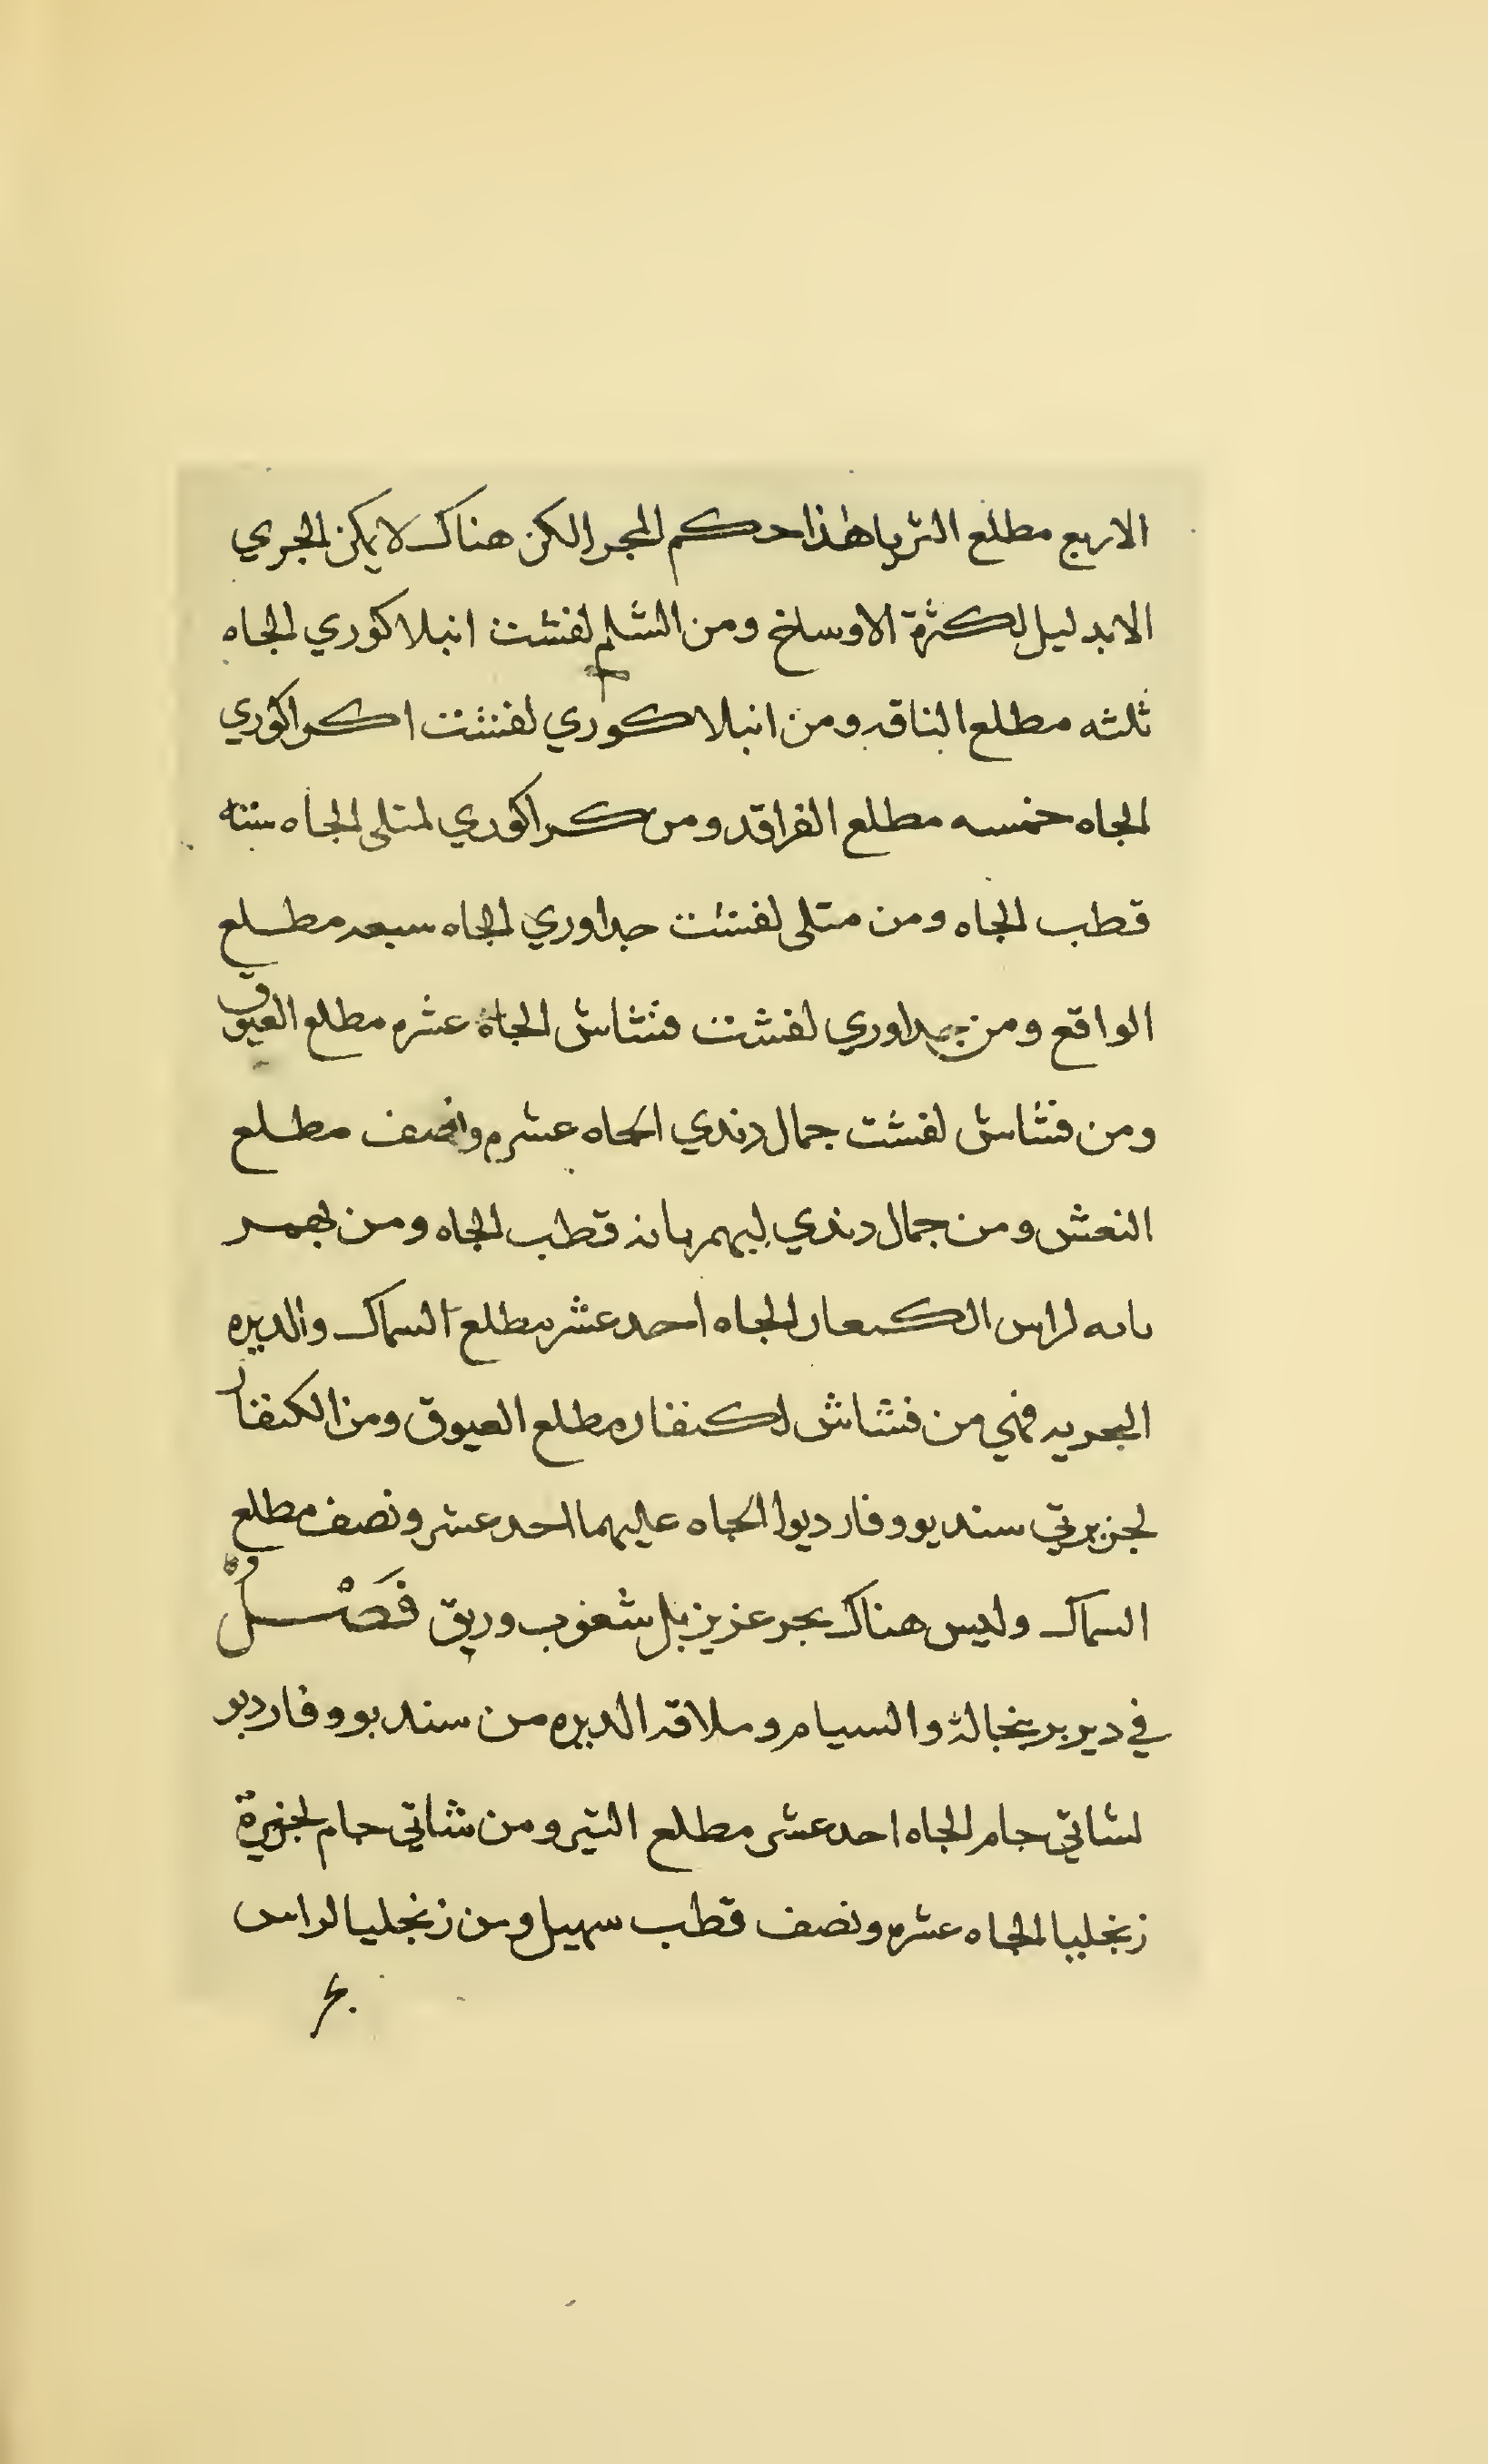 الاربع مطلع الثريا هذا حكم المجرا لكن هناك لا يمكن الجري
الا بدليل لكثرة الاوساخ ومن الشلم لفشت انبلا كوري الجاه
ثلثه مطلع الناقه ومن انبلا كوري لفشت اكراكوري
الجاه خمسه مطلع الفراقد ومن كراكوري لمتلى الجاه سته
قطب الجاه ومن متلى لفشت جداوري الجاه سبعه مطلع
الواقع ومن جداوري لفشت فشاش الجاه عشره مطلع العيوق
ومن فشاش لفشت جمال دندي الجاه عشره ونصف مطلع
النعش ومن جمال دندي لبهمر بانه قطب الجاه ومن بهمر
بانه لراس الكنفار الجاه احد عشر مطلع السماك والديره
البحريه فهي من فشاش لكنفار مطلع العيوق ومن الكنفار
لجزيرتي سنديو وفارديوا الجاه عليهما احد عشر ونصف مطلع
السماك وليس هناك بحر عزيز بل شعوب وريق فَصْلٌ
في دير بر بنجالة والسيام وملاقه الديره من سنديو وفارديو
لشاتي جام الجاه احد عشر مطلع التير ومن شاتي جام لجزيرة
زنجليا الجاه عشره ونصف قطب سهيل ومن زنجليا لراس